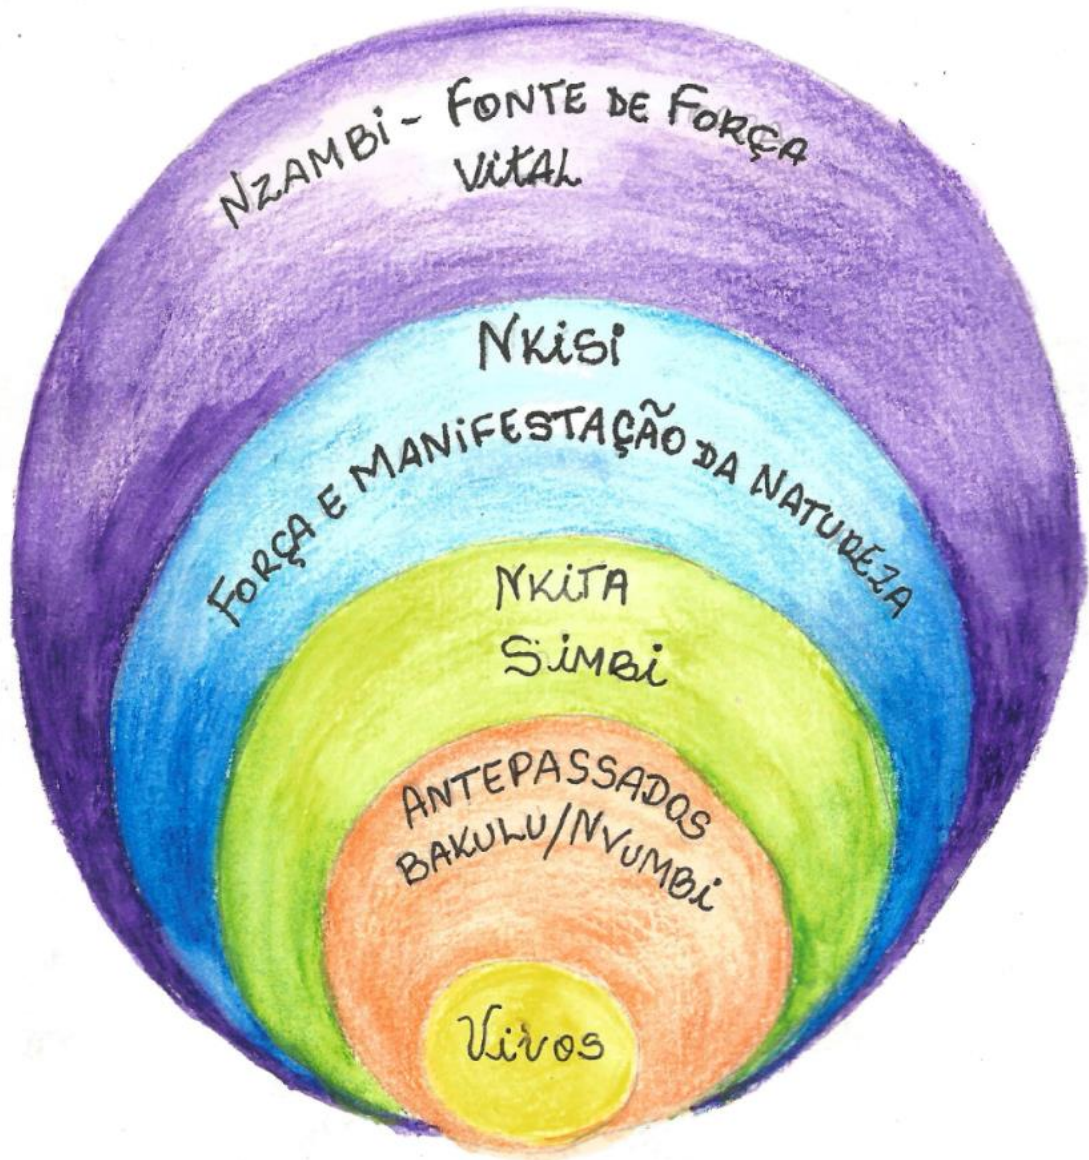 NZAMBi - FONTE DE FORÇA
ViTAL
NKiSi
FORÇA E MANiFESTAÇÃO DA NATUREZA
NKiTA
SiMBi
ANTEPASSADOS
BAKULU/NVUMBi
Vivos